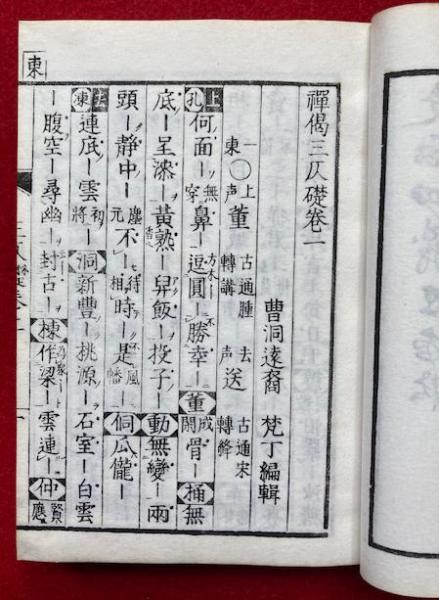 禪偈三仄礎卷一
曹洞遠裔 梵丁編輯
一東○上声董 古通腫轉講 去声送 古通宋轉絳
上 孔 何面ー 無穿鼻ー 方木逗圓ー 不勝幸ー 董 成閙骨ー 桶 無
底ー 呈漆ー 黃熟ー 舁飯ー 投子ー 動 無變ー 兩
頭ー 靜中ー 塵元不ー 待相時ー 不是風幡ー 侗 瓜儱ー
去 凍 連底ー 雲初將ー 洞 新豐ー 桃源ー 石室ー 白雲
ー 腹空ー 尋幽ー 封古ー 棟 作梁ー 雲連ー 仲 賢應
東